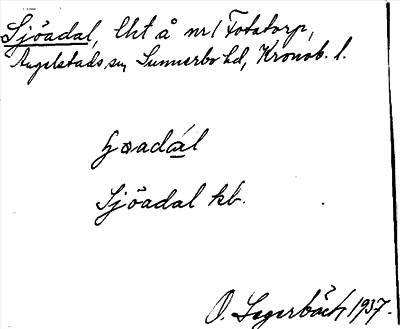 Sjöadal, lht å nr 1 Totatorp,
Angelstads sn, Sunnerbo hd, Kronob. l.
Sjöadal kb.
O. Sagerbäck 1937.